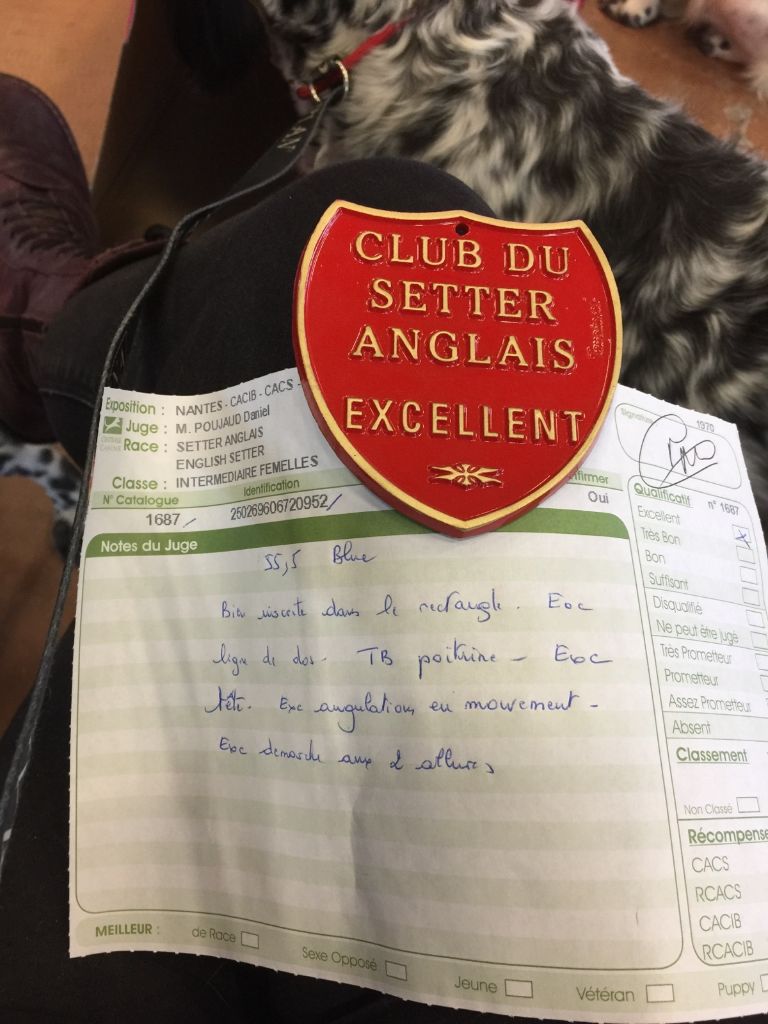 CLUB DU
SETTER
ANGLAIS
EXCELLENT
Exposition : NANTES - CACIB - CACS -
Juge : M. POUJAUD Daniel
Race : SETTER ANGLAIS
ENGLISH SETTER
Classe : INTERMEDIAIRE FEMELLES
N° Catalogue
Identification
1687
250269606720952
Oui
Signature
1970
Notes du Juge
55,5 Blue
Bien inscrite dans le rectangle. Exc
ligne de dos - TB poitrine - Exc
tête. Exc angulations en mouvement -
Exc demarche aux 2 allures
Qualificatif n° 1687
Excellent
Très Bon
Bon
Suffisant
Disqualifié
Ne peut être jugé
Très Prometteur
Prometteur
Assez Prometteur
Absent
Classement
Non Classé
Récompense
CACS
RCACS
CACIB
RCACIB
MEILLEUR : de Race
Sexe Opposé
Jeune
Vétéran
Puppy